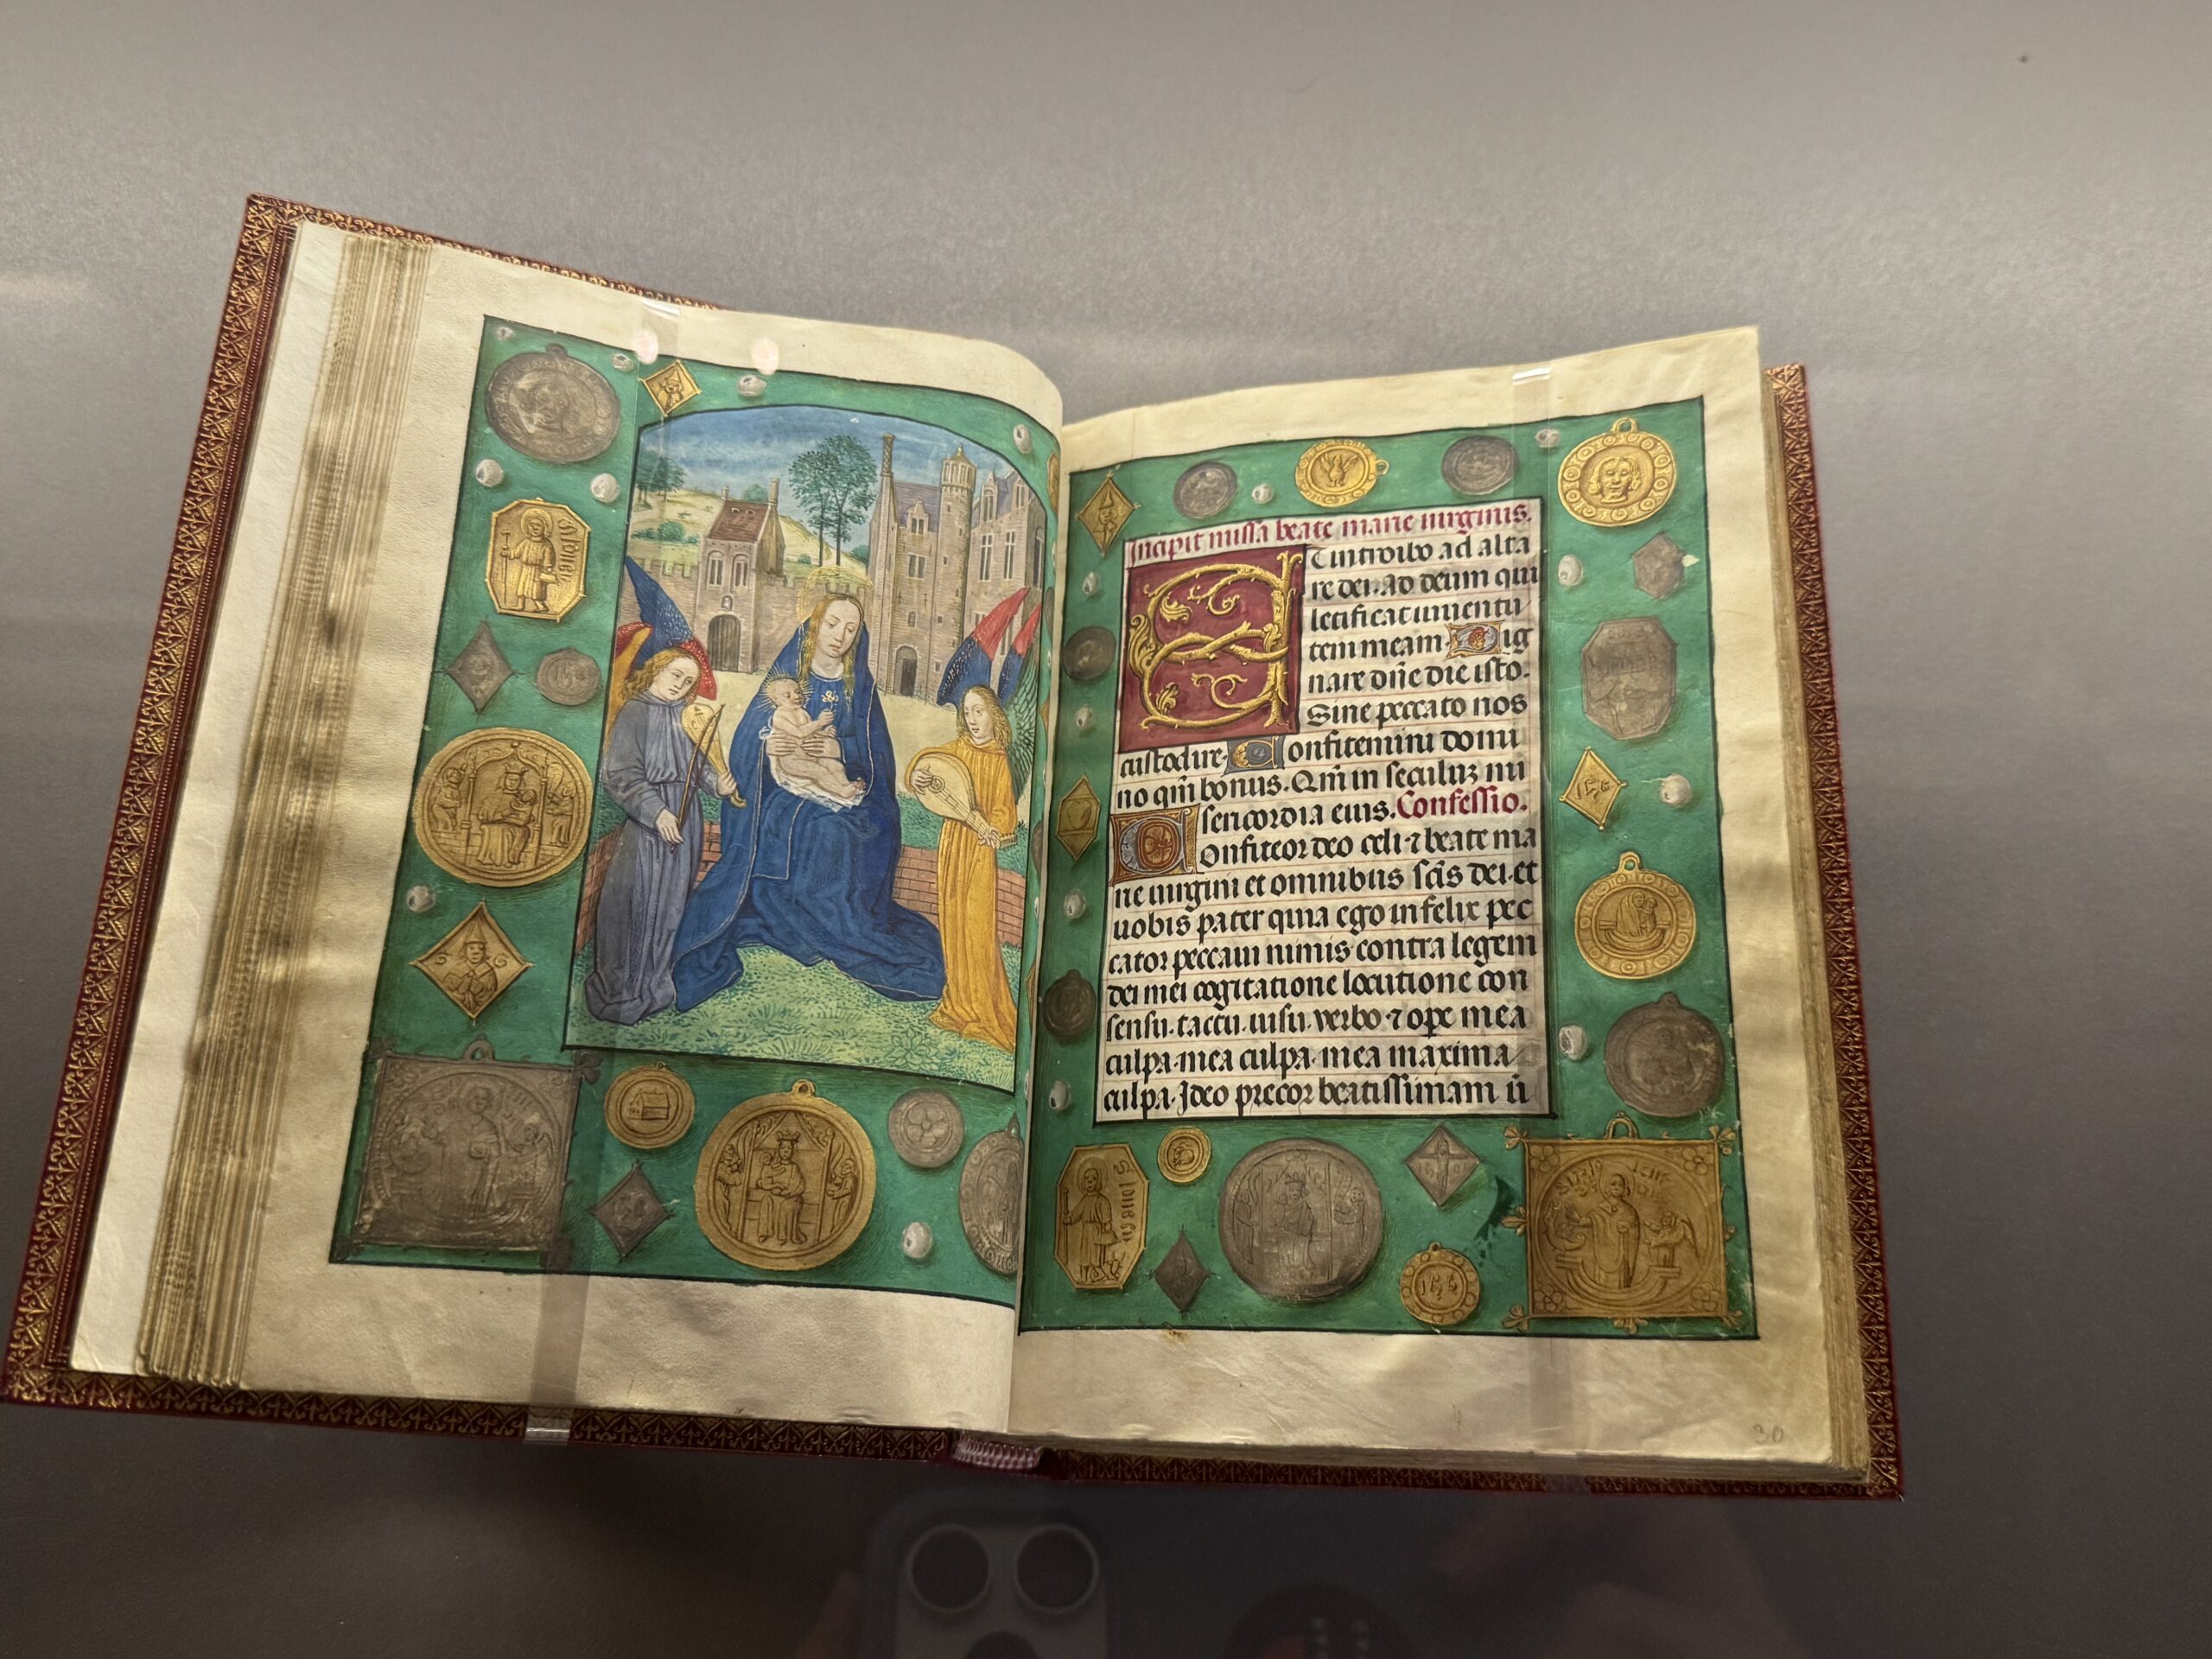 Incipit missa beate marie uirginis.
Et introibo ad alta
re dei. Ad deum qui
letificat iuuentu
tem meam. Dig
nare dñe die isto.
Sine peccato nos
custodire. Confitemini domi
no qm̃ bonus. Qm̃ in seculuʒ mi
sericordia eius. Confessio.
Confiteor deo celi ⁊ beate ma
rie uirgini et omnibus scĩs dei. et
uobis pater quia ego infelix pec
cator peccaui nimis contra legem
dei mei cogitatione locutione con
sensu. tactu. uisu. verbo ⁊ oꝑe mea
culpa. mea culpa. mea maxima
culpa. Ideo precor beatissimam ũ
30